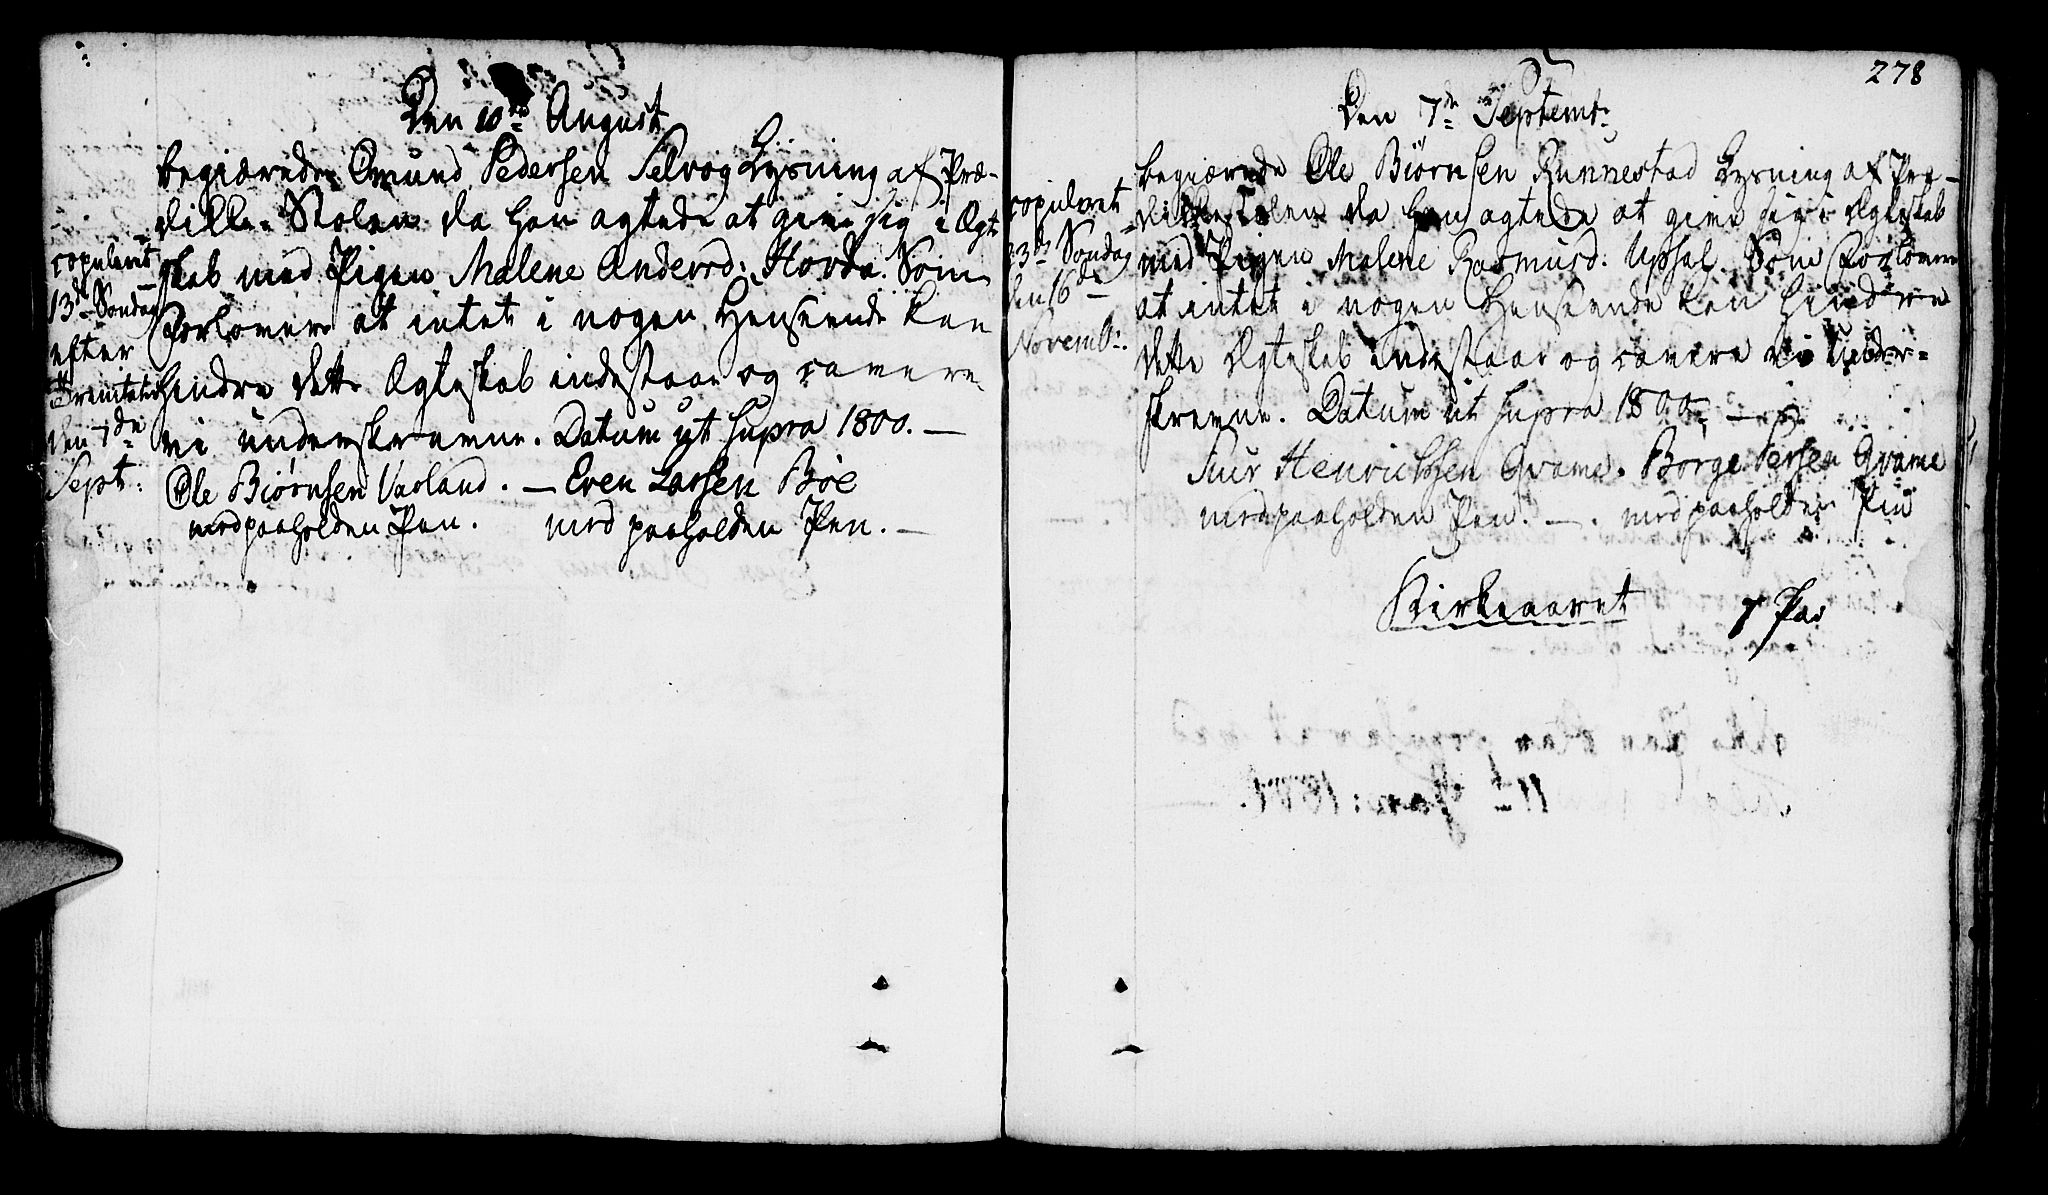 Den 10de August
begiærede Omund Pedersen Selvog Lysning af Præ-
dike-Stolen da han agtede at give sig i Ægte
skab med Pigen Malene Andersd: Horde. Som
Forlovere at intet i nogen Henseende kan
hindre dette Ægteskab indestaae og cavere
vi underskrevne. Datum ut supra 1800. —
Ole Biørnsen Varland. — Even Larsen Böe
med paaholden Pen. med paaholden Pen. —
copuleret
13de Søndag
efter
Trenitatis
den 7de
Sept:
278
Den 7de Septembr:
begiærede Ole Biörnsen Runnestad Lysning af Præ-
dikestolen da han agtede at give sig i Ægteskab
med Pigen Malene Rasmusd. Upsal. Som Forlovere
at intet i nogen Henseende kan hindre
dette Ægteskab indestaae og cavere vi under-
skrevne. Datum ut supra 1800 —
Siur Henrichsen Qvame. Börge Persen Qvame
med paaholden Pen. — . med paaholden Pen
copuleret
23de Søndag
den 16de
Novembr:
Kirkeaaret 7 Par